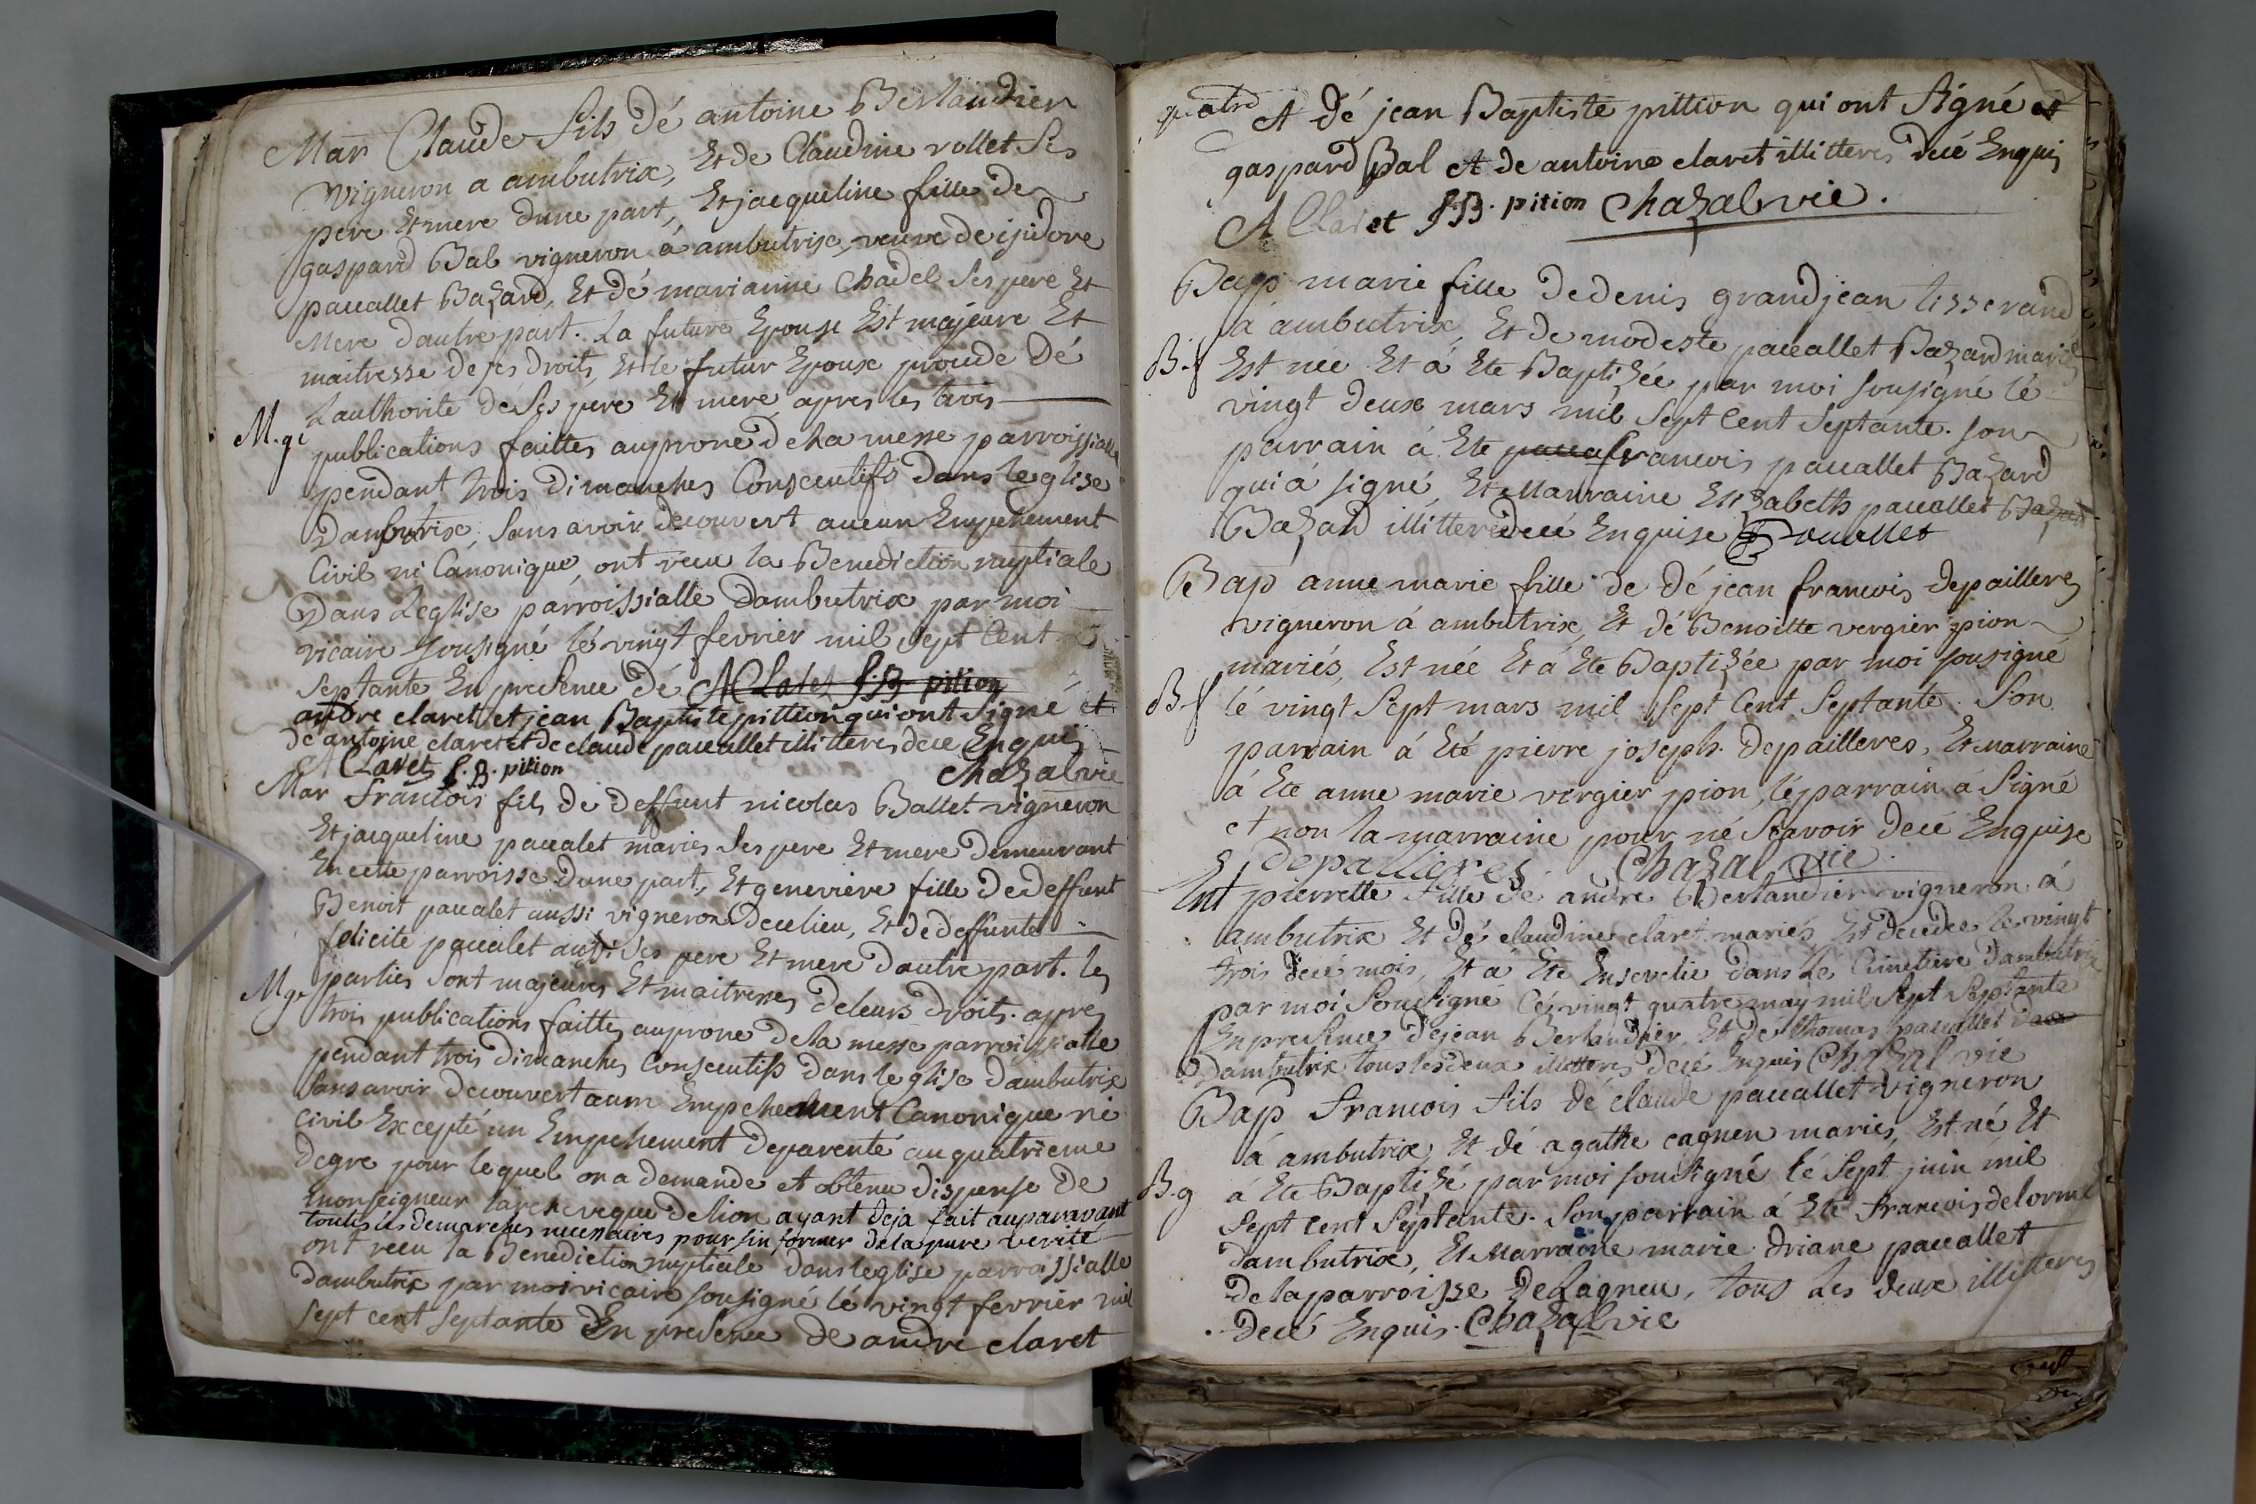 Mar Claude fils dé antoine Berlandier
vigneron a ambutrix, Et de Claudine rollet Ses
pere Et mere dune part, Et jacqueline fille de
gaspard Bal vigneron à ambutrix, veuve de isidore
pauallet Bazard, Et dé marianne Chadel Ses pere Et
Mere dautre part. La future Epouse Est majeure Et
maitresse de ses droits, Et le futur Epoux proude dé
L'authorité dé Ses pere Et mere apres les trois
M.ge
publications faittes au prone de La messe parroissialle
pendant trois Dimanches Consecutifs dans leglise
Dambutrix, Sans avoir decouvert aucun Empchement
Civil ni Canonique, ont recu la Benediction nuptiale
Dans Leglise parroissialle Dambutrix par moi
vicaire Sousigné lé vingt fevrier mil Sept Cent
Septante En presence dé A Claret J.B. pition
andre claret et jean Baptiste pittion qui ont Signé et
de antoine claret et de claude pauallet illitteres dece Enquis
A Claret J.B. pition Chazal vie
Mar francois fils dé deffunt nicolas Ballet vigneron
Et jacqueline paualet mariés Ses pere Et mere demeurant
En cette parroisse dune part, Et genevieve fille de deffunt
Benoit paualet aussi vigneron de ce lieu, Et de deffunte
felicité paualet aussi Ses pere Et mere dautre part. les
M.ge
parties Sont majeures Et maitresses de leurs droits. apres
trois publications faittes au prone de la messe parroissialle
pendant trois Dimanches Consecutifs dans leglise Dambutrix
Sans avoir decouvert aucun Empchement Canonique ni
Civil Excepté un Empchement de parenté au quatrieme
degre pour lequel on a demande et obtenu dispense de
monseigneur larcheveque de lion ayant deja fait auparavant
toutes les demarches necessaires pour sin former de la pure verite
ont recu la Benediction nuptiale dans leglise parroissialle
Dambutrix par moi vicaire Sousigné lé vingt fevrier mil
Sept cent Septante En presence de andre claret
quatre
Et dé jean Baptiste pittion qui ont Signé et
gaspard Bal Et de antoine claret illitteres decé Enquis
A Claret J.B. pition Chazal vie.
Bap marie fille de denis grandjean tisserand
à ambutrix, Et de modeste pauallet Bazard mariés
B.f
Est née Et à Ete Baptizée par moi Sousigné lé
vingt deux mars mil Sept Cent Septante. Son
parrain à Ete paua francois pauallet Bazard
qui à signé, Et Marraine Elizabeth pauallet Bazard
Bazard illitterée decé Enquise Pauallet
Bap anne marie fille de dé jean francois depailleres
vigneron à ambutrix, Et dé Benoitte vergier pion
mariés, Est née Et à Ete Baptizée par moi Sousigné
B.f
lé vingt Sept mars mil Sept Cent Septante. Son
parrain à Eté pierre joseph depailleres, Et marraine
à Ete anne marie vergier pion, lé parrain à Signé
et non la marraine pour né Scavoir decé Enquise
depallieres Chazal vie.
Ent pierrette fille dé andre Berlandier vigneron à
ambutrix Et dé claudine claret mariés, Est decedée le vingt
trois decé mois, Et à Ete Ensevelie dans Le Cimetiere Dambutrix
par moi Sousigné cé vingt quatre may mil Sept Septante
En presence de jean Berlandier, Et dé thomas pauallet
Dambutrix tous les deux illitteres decé Enquis Chazal vie
Bap francois fils dé claude pauallet vigneron
à ambutrix, Et dé agathe cagnen mariés, Est né Et
B.g
à Ete Baptizé par moi Sousigné lé Sept juin mil
Sept cent Septante. Son parrain à Ete francois delorme
Dambutrix, Et Marraine marie driane pauallet
De la parroisse De Lagneu, tous les deux illitteres
Decé Enquis. Chazal vie